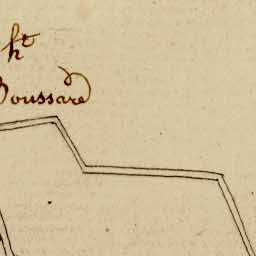 ht
Boussard